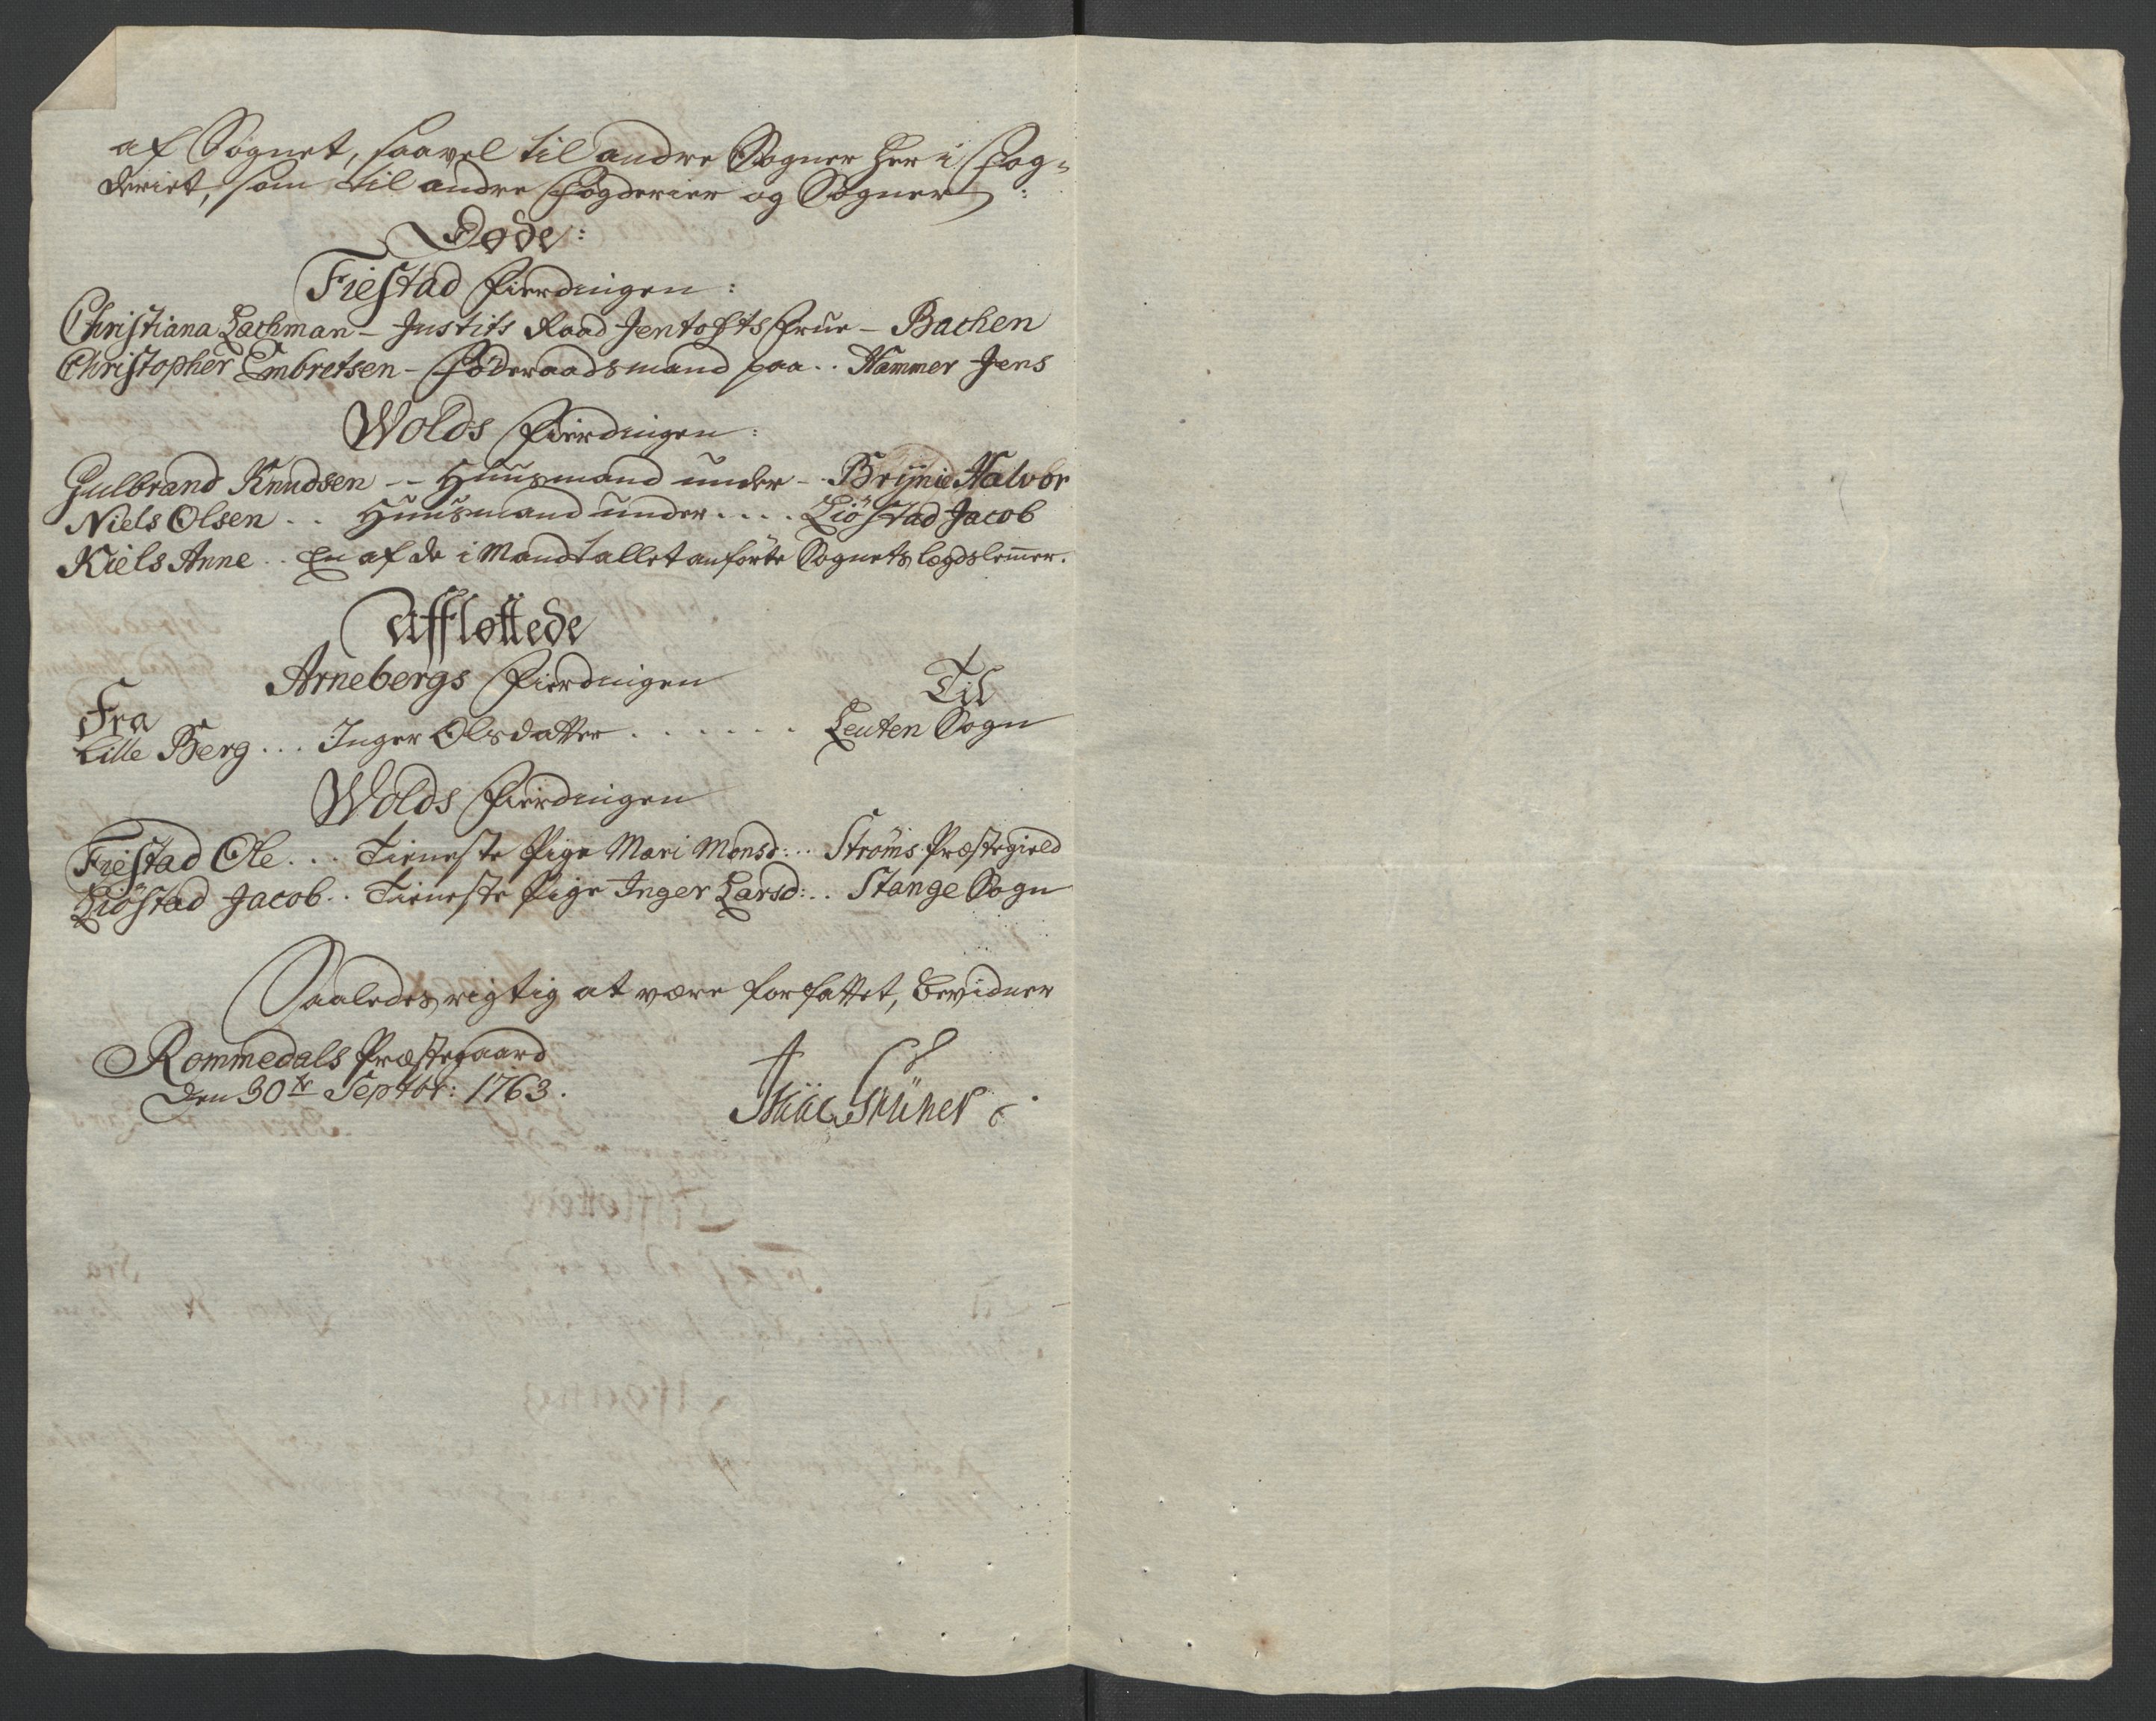 af Sognet, saavel til andre Sogner her i Fog-
deriet, som til andre Fogderier og Sogner:
Døde:
Fiestad Fierdingen:
Christiana Lachman - Justits Raad Jentofts Frue - Bachen
Christopher Embretsen - Föderaadsmand paa .. Hammer Jens
Wolds Fierdingen:
Gulbrand Knudsen -- Huusmand under -- Brynie Halvor
Niels Olsen .. Huusmand under .... Liöstad Jacob
Kiels Anne .. En af de i Mandtallet anförte Sognets lægdslemer.
Affløttede
Arnebergs Fierdingen
Fra Til
Lille Berg ... Inger Olsdatter ....... Leuten Sogn
Wolds Fierdingen
Fiestad Ole ... Tieneste Pige Mari Monsd: .. Ströms Præstegield
Liöstad Jacob .. Tieneste Pige Inger Larsd: .. Stange Sogn
Saaledes rigtig at være forfattet, bevidner
Rommedals Præstegaard
Den 30te Septbr: 1763.
Isaac Grüner